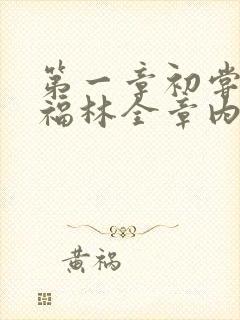 第一章初尝
福林全章内
黄祸